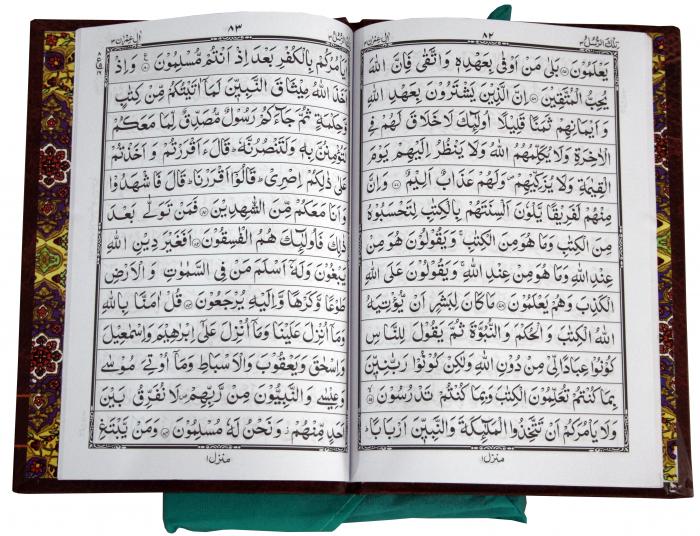 تلك الرسل ٣
٨٢
اٰل عمرٰن ٣
يَعْلَمُوْنَ بَلٰى مَنْ اَوْفٰى بِعَهْدِهٖ وَاتَّقٰى فَاِنَّ اللّٰهَ
يُحِبُّ الْمُتَّقِيْنَ اِنَّ الَّذِيْنَ يَشْتَرُوْنَ بِعَهْدِ اللّٰهِ
وَ اَيْمَانِهِمْ ثَمَنًا قَلِيْلًا اُولٰٓئِكَ لَا خَلَاقَ لَهُمْ فِى
الْاٰخِرَةِ وَلَا يُكَلِّمُهُمُ اللّٰهُ وَلَا يَنْظُرُ اِلَيْهِمْ يَوْمَ
الْقِيٰمَةِ وَلَا يُزَكِّيْهِمْ وَلَهُمْ عَذَابٌ اَلِيْمٌ وَاِنَّ
مِنْهُمْ لَفَرِيْقًا يَّلْوٗنَ اَلْسِنَتَهُمْ بِالْكِتٰبِ لِتَحْسَبُوْهُ
مِنَ الْكِتٰبِ وَمَا هُوَ مِنَ الْكِتٰبِ وَيَقُوْلُوْنَ هُوَ مِنْ
عِنْدِ اللّٰهِ وَمَا هُوَ مِنْ عِنْدِ اللّٰهِ وَيَقُوْلُوْنَ عَلَى اللّٰهِ
الْكَذِبَ وَهُمْ يَعْلَمُوْنَ مَا كَانَ لِبَشَرٍ اَنْ يُّؤْتِيَهُ
اللّٰهُ الْكِتٰبَ وَ الْحُكْمَ وَ النُّبُوَّةَ ثُمَّ يَقُوْلَ لِلنَّاسِ
كُوْنُوْا عِبَادًا لِّىْ مِنْ دُوْنِ اللّٰهِ وَلٰكِنْ كُوْنُوْا رَبّٰنِيّٖنَ
بِمَا كُنْتُمْ تُعَلِّمُوْنَ الْكِتٰبَ وَبِمَا كُنْتُمْ تَدْرُسُوْنَ
وَلَا يَاْمُرَكُمْ اَنْ تَتَّخِذُوا الْمَلٰٓئِكَةَ وَالنَّبِيّٖنَ اَرْبَابًا
منزل ١
تلك الرسل ٣
٨٣
اٰل عمرٰن ٣
اَيَاْمُرُكُمْ بِالْكُفْرِ بَعْدَ اِذْ اَنْتُمْ مُّسْلِمُوْنَ وَ اِذْ
اَخَذَ اللّٰهُ مِيْثَاقَ النَّبِيّٖنَ لَمَاۤ اٰتَيْتُكُمْ مِّنْ كِتٰبٍ
وَّحِكْمَةٍ ثُمَّ جَآءَكُمْ رَسُوْلٌ مُّصَدِّقٌ لِّمَا مَعَكُمْ
لَتُؤْمِنُنَّ بِهٖ وَلَتَنْصُرُنَّهٗ قَالَ ءَاَقْرَرْتُمْ وَ اَخَذْتُمْ
عَلٰى ذٰلِكُمْ اِصْرِىْ قَالُوْۤا اَقْرَرْنَا قَالَ فَاشْهَدُوْا
وَ اَنَا مَعَكُمْ مِّنَ الشّٰهِدِيْنَ فَمَنْ تَوَلّٰى بَعْدَ
ذٰلِكَ فَاُولٰٓئِكَ هُمُ الْفٰسِقُوْنَ اَفَغَيْرَ دِيْنِ اللّٰهِ
يَبْغُوْنَ وَلَهٗۤ اَسْلَمَ مَنْ فِى السَّمٰوٰتِ وَ الْاَرْضِ
طَوْعًا وَّكَرْهًا وَّ اِلَيْهِ يُرْجَعُوْنَ قُلْ اٰمَنَّا بِاللّٰهِ
وَمَاۤ اُنْزِلَ عَلَيْنَا وَمَاۤ اُنْزِلَ عَلٰۤى اِبْرٰهِيْمَ وَاِسْمٰعِيْلَ
وَ اِسْحٰقَ وَيَعْقُوْبَ وَالْاَسْبَاطِ وَمَاۤ اُوْتِىَ مُوْسٰى
وَ عِيْسٰى وَالنَّبِيُّوْنَ مِنْ رَّبِّهِمْ لَا نُفَرِّقُ بَيْنَ
اَحَدٍ مِّنْهُمْ وَ نَحْنُ لَهٗ مُسْلِمُوْنَ وَمَنْ يَّبْتَغِ
منزل ١